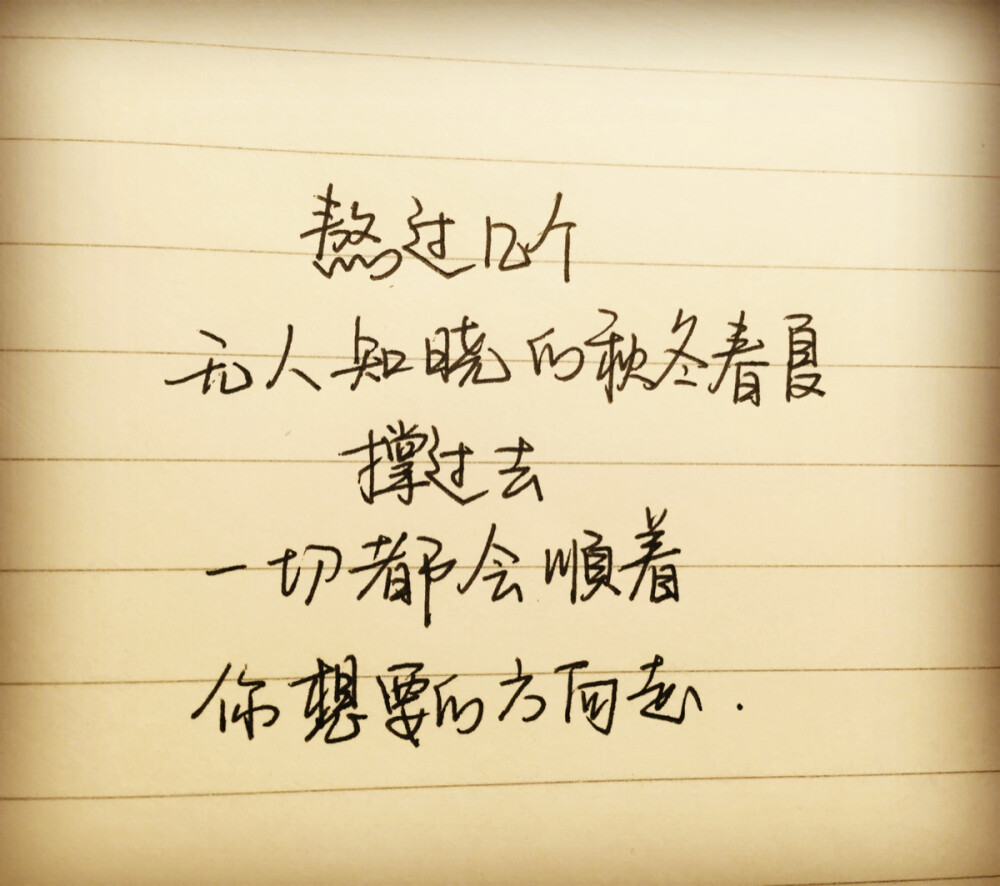 熬过几个
无人知晓的秋冬春夏
撑过去
一切都会順着
你想要的方向走.